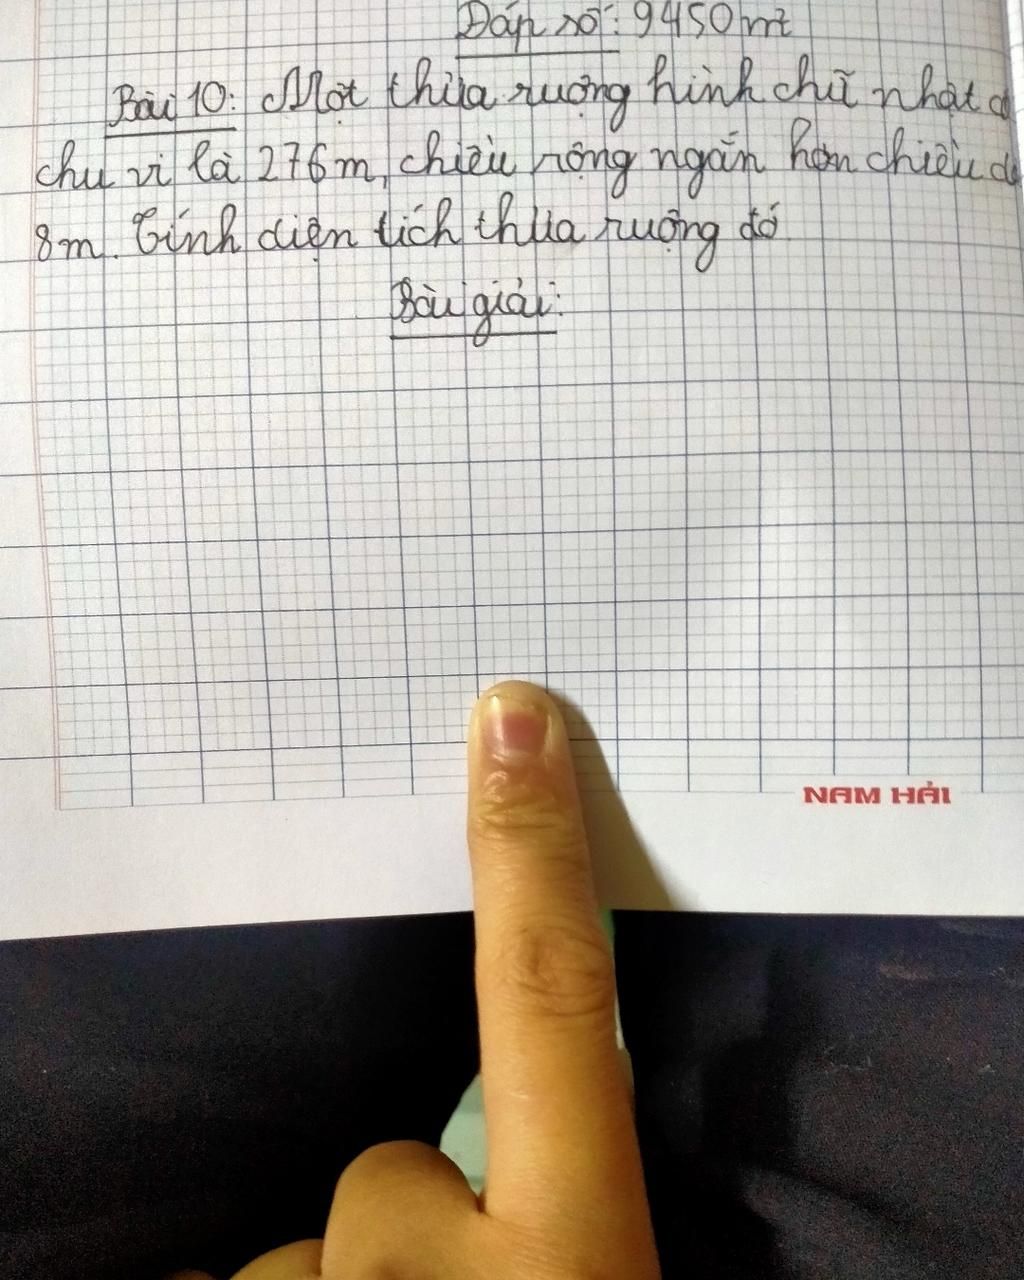 Đáp số: 9450 m²
Bài 10: Một thửa ruộng hình chữ nhật
chu vi là 276m, chiều rộng ngắn hơn chiều
8m. Tính diện tích thửa ruộng đó
Bài giải:
NAM HẢI